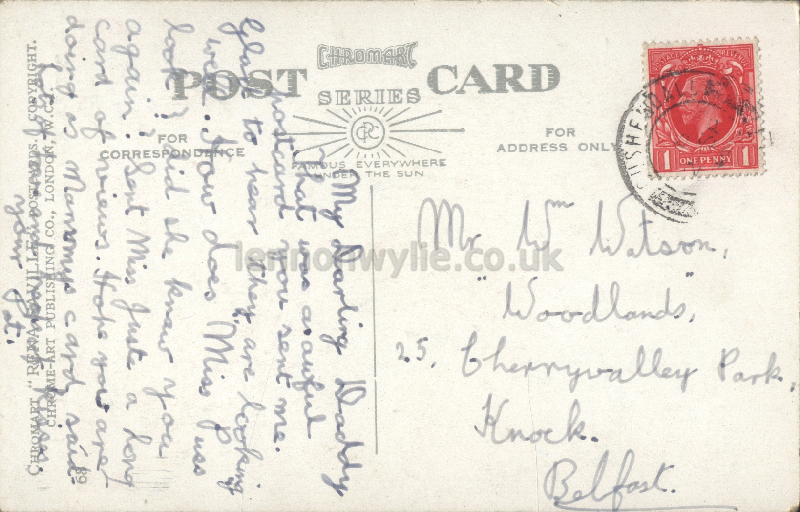 CHROMART
POST CARD
SERIES
FOR
CORRESPONDENCE
FAMOUS EVERYWHERE
UNDER THE SUN
FOR
ADDRESS ONLY
POSTAGE REVENUE
1 ONE PENNY 1
CUSHENDALL
My Darling Daddy
That was a awful
postcard you sent me.
Glad to hear they are looking
well. How does Miss Puss
look? did she know you
again? Sent Miss Just a long
card of views. Hope you are
doing as Mammys card said.
your
Mr Wm Watson,
"Woodlands",
25, Cherryvalley Park,
Knock.
Belfast.
CHROMART "RENAVILLE" POSTCARDS. COPYRIGHT.
CHROME-ART PUBLISHING CO., LONDON, W.C.
68
lennonwylie.co.uk